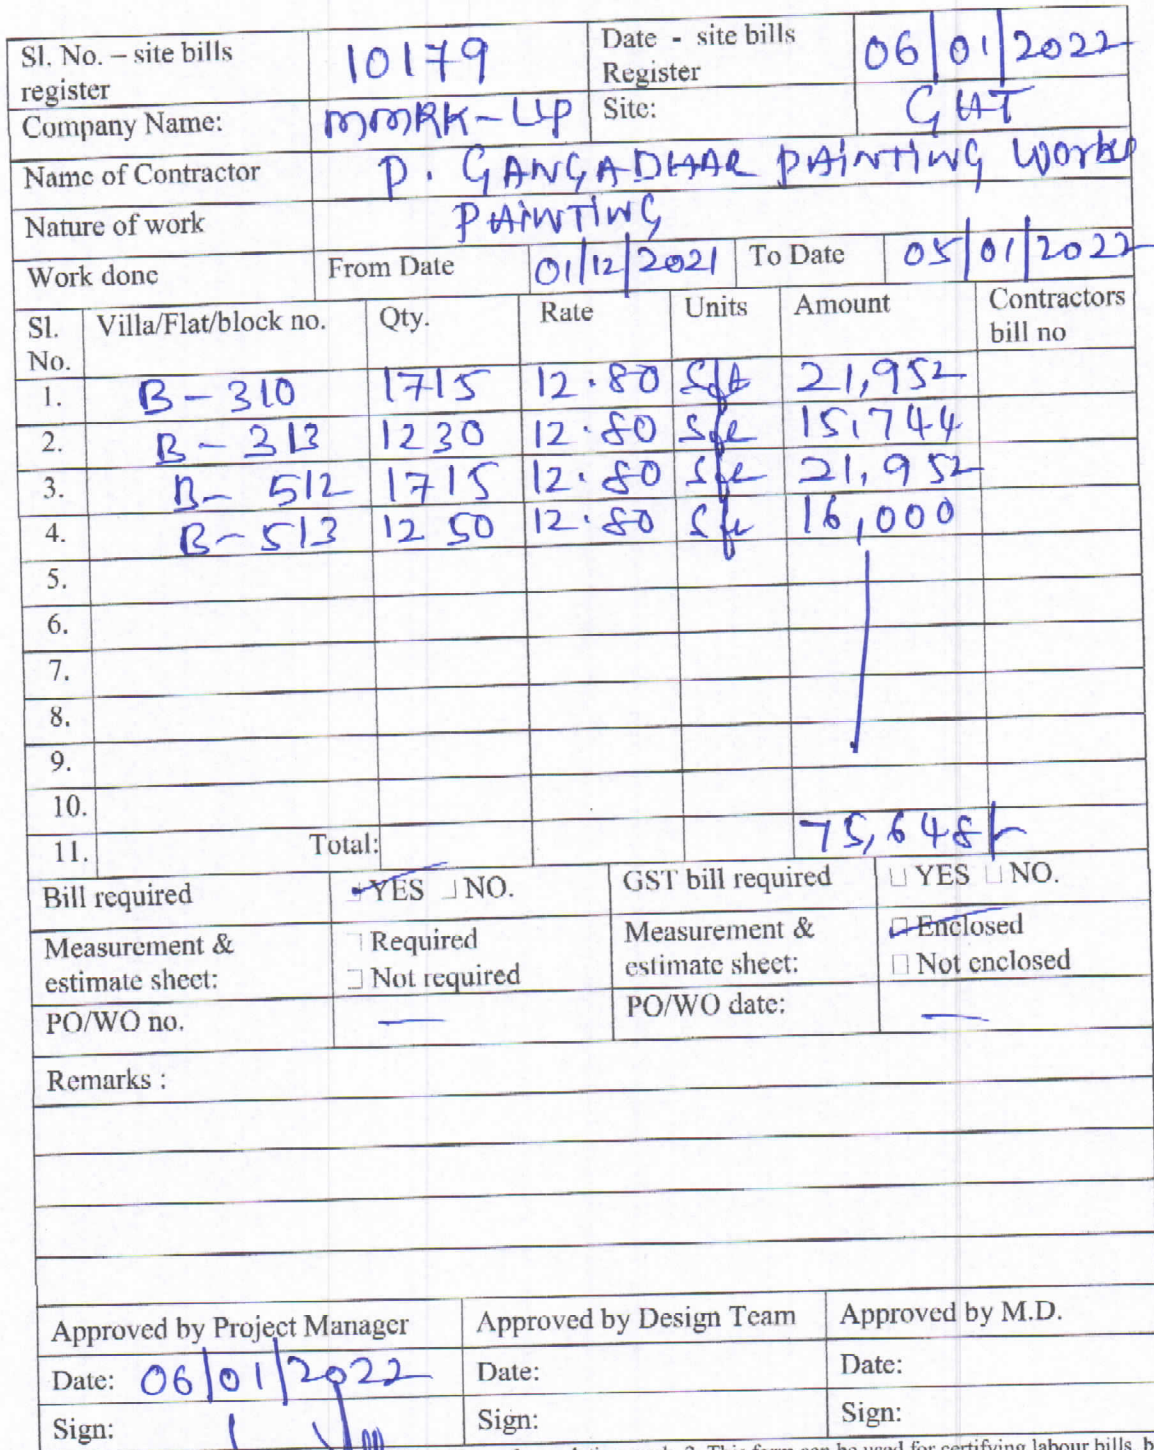 Sl. No. – site bills register 10179 Date - site bills Register 06/01/2022
Company Name: MMRK-LLP Site: GHT
Name of Contractor P. GANGADHAR PAINTING WORKS
Nature of work PAINTING
Work done From Date 01/12/2021 To Date 05/01/2022
Sl. No. Villa/Flat/block no. Qty. Rate Units Amount Contractors bill no
1. B-310 1715 12.80 Sft 21,952
2. B-313 1230 12.80 Sft 15,744
3. B-512 1715 12.80 Sft 21,952
4. B-513 1250 12.80 Sft 16,000
5.
6.
7.
8.
9.
10.
11. Total: 75,648/-
Bill required YES NO. GST bill required YES NO.
Measurement & estimate sheet: Required Not required Measurement & estimate sheet: Enclosed Not enclosed
PO/WO no. — PO/WO date: —
Remarks :
Approved by Project Manager Approved by Design Team Approved by M.D.
Date: 06/01/2022 Date: Date:
Sign: Sign: Sign:
2. This form can be used for certifying labour bills, b